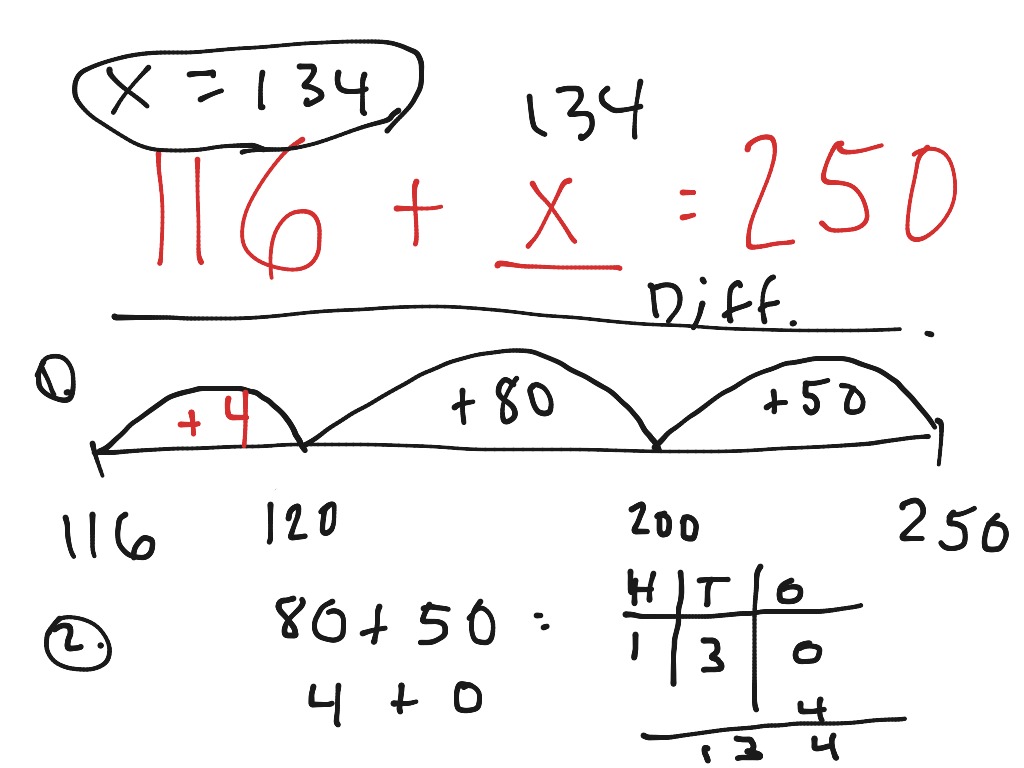 x = 134
134
116 + x = 250
Diff.
1.
+ 4 + 80 + 50
116 120 200 250
2.
80 + 50 =
4 + 0
H T O
1 3 0
4
1 3 4